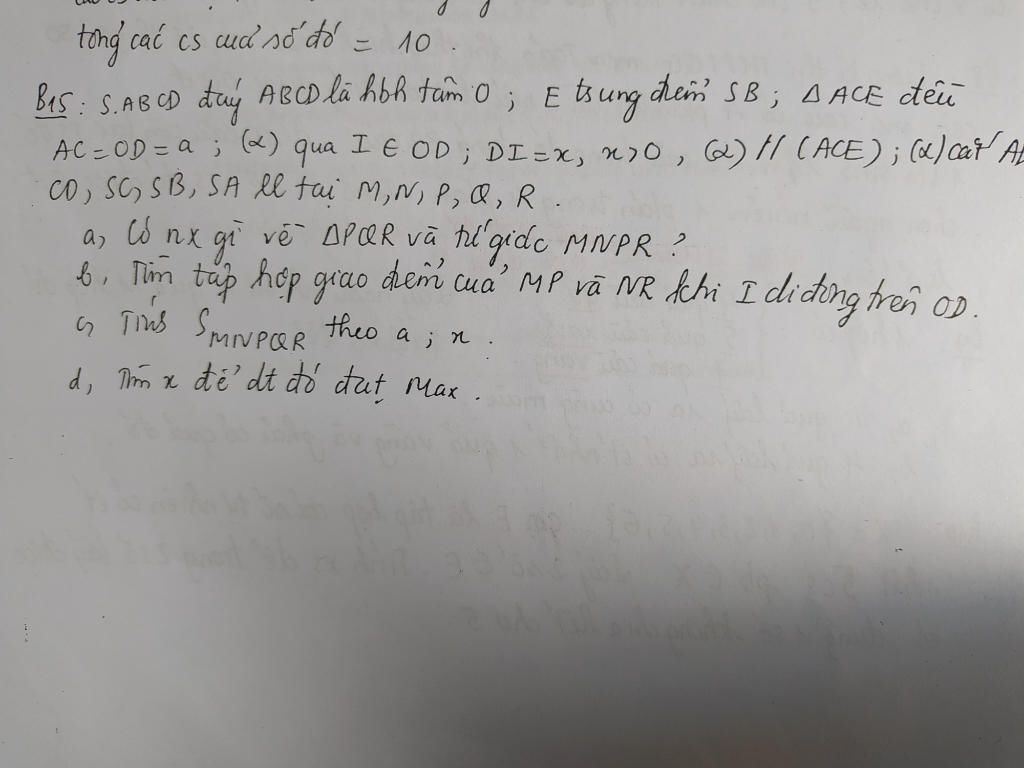 tổng các cs của số đó = 10.
B15: S.ABCD đáy ABCD là hbh tâm O; E trung điểm SB; Δ ACE đều
AC=OD=a; (α) qua I ∈ OD; DI=x, x>0, (α) // (ACE); (α) cắt AD
CD, SC, SB, SA ll tại M, N, P, Q, R.
a, Có nx gì về ΔPQR và tứ giác MNPR?
b, Tìm tập hợp giao điểm của MP và NR khi I di động trên OD.
c, Tính S MNPQR theo a; x.
d, Tìm x để dt đó đạt Max.